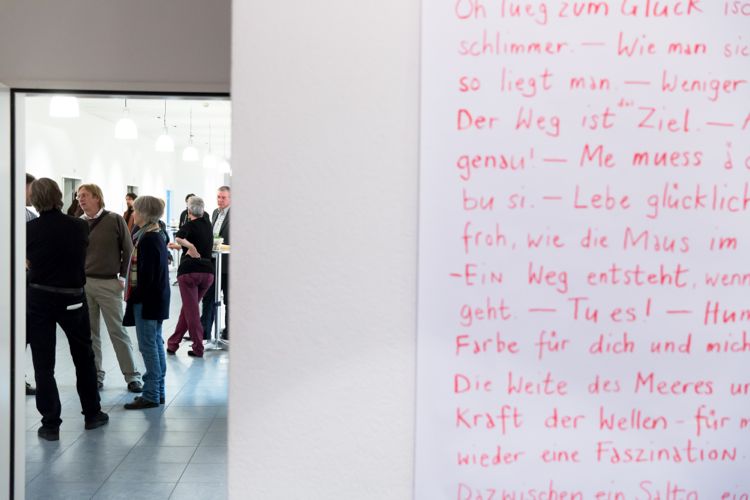 Oh lueg zum Glück isch
schlimmer. — Wie man sic
so liegt man. — Weniger
Der Weg ist das Ziel. —
genau! — Me muess
bu si. — Lebe glücklich
froh, wie die Maus im
-Ein Weg entsteht, wenn
geht. — Tu es! — Hum
Farbe für dich und mich
Die Weite des Meeres un
Kraft der Wellen - für m
wieder eine Faszination.
Dazwischen ein Salto, ein